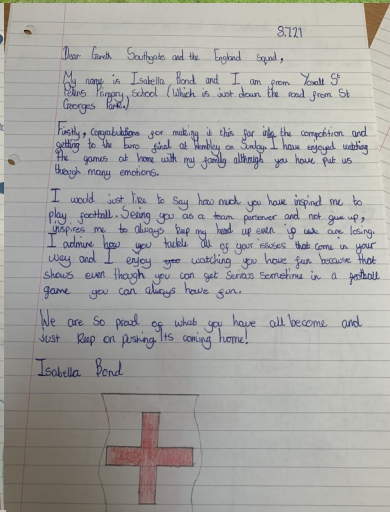 8.7.21
Dear Gareth Southgate and the England Squad,
My name is Isabella Bond and I am from Yoxall St
Peters Primary School (which is just down the road from St
Georges Park.)
Firstly, congratulations for making it this far into the competition and
getting to the Euro final at Wembley on Sunday. I have enjoyed watching
the games at home with my family although you have put us
through many emotions.
I would just like to say how much you have inspired me to
play football. Seeing you as a team persever and not give up,
inspires me to always keep my head up even if we are losing.
I admire how you tackle all of your issues that come in your
way and I enjoy watching you have fun because that
shows even though you can get serious sometime in a football
game you can always have fun.
We are so proud of what you have all become and
just keep on pushing Its coming home!
Isabella Bond